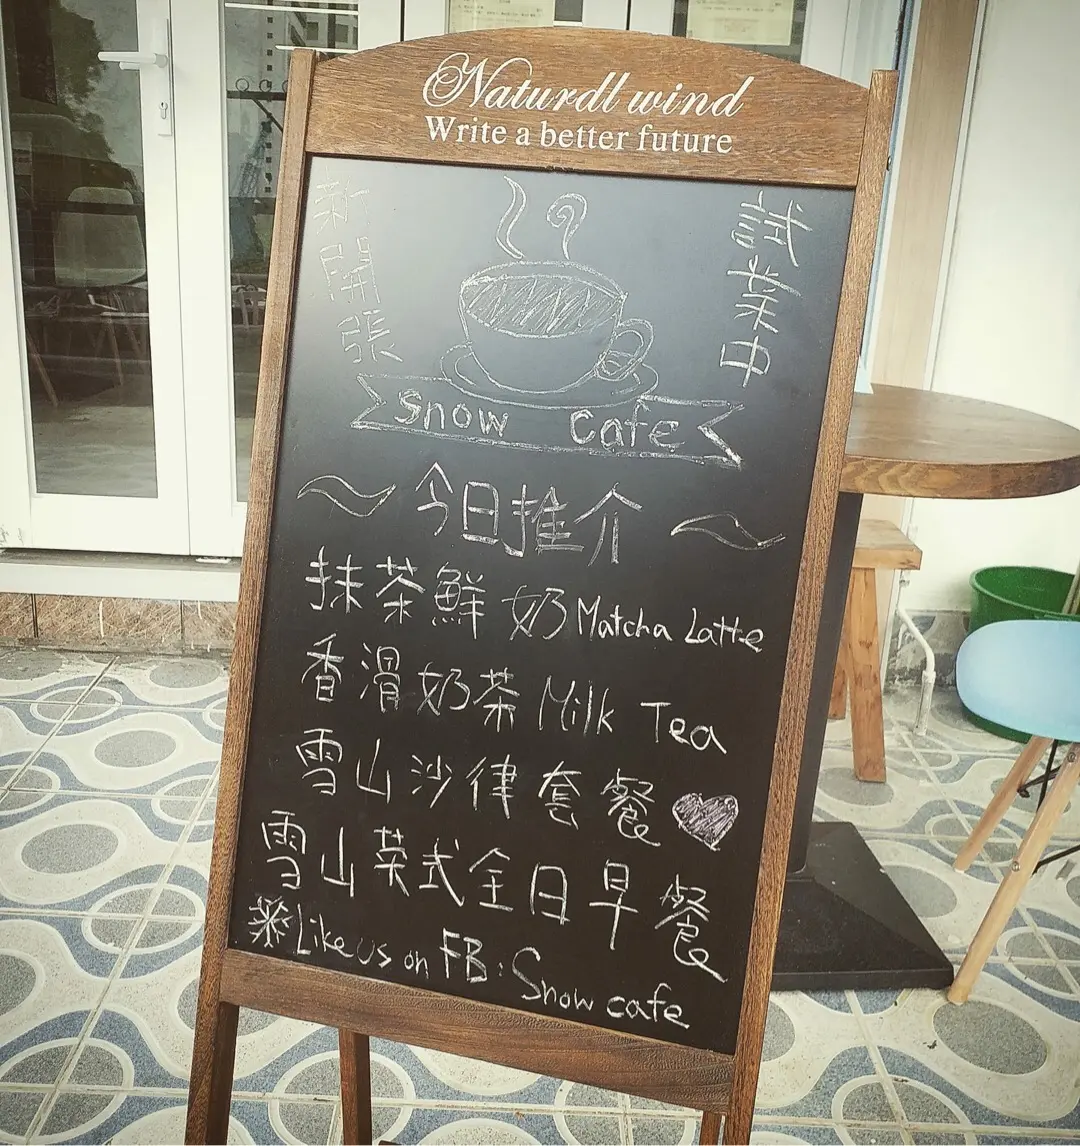 Naturdl wind
Write a better future
新開張
試業中
Snow cafe
今日推介
抹茶鮮奶 Matcha Latte
香滑奶茶 Milk Tea
雪山沙律套餐
雪山英式全日早餐
Like us on FB: Snow cafe